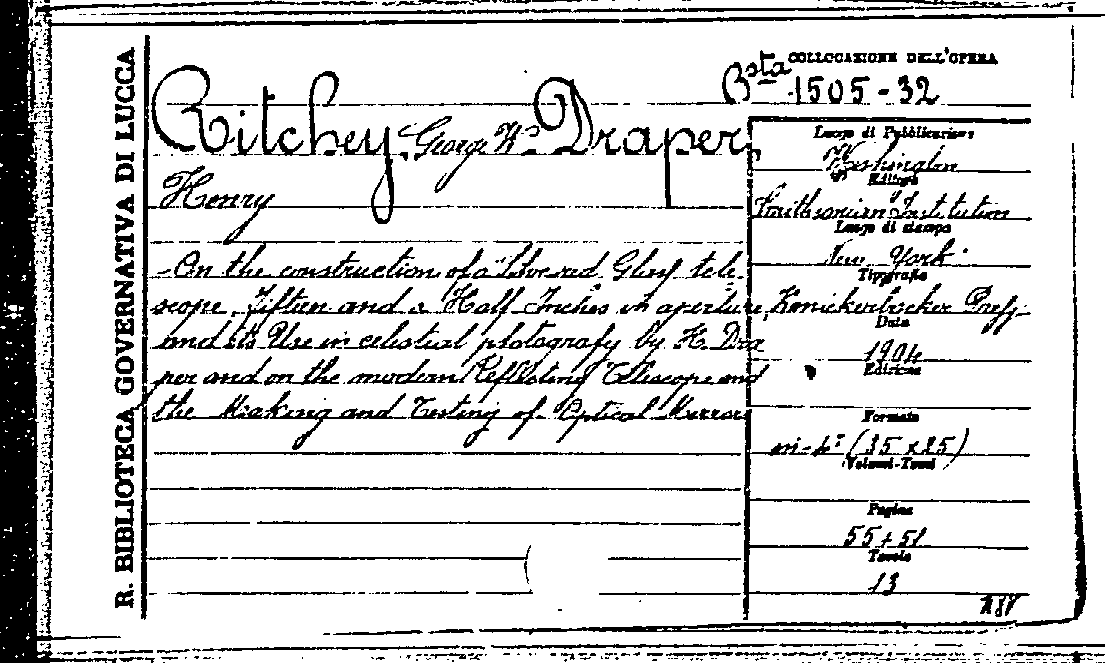 R. BIBLIOTECA GOVERNATIVA DI LUCCA
COLLOCAZIONE DELL'OPERA
Bsta 1505-32
Ritchey, George W. Draper,
Henry
- On the construction of a Silvered Glass tele-
scope, Fifteen and a Half Inches in aperture,
and its Use in celestial photografy by H. Dra
per and on the modern Reflecting Telescope and
the Making and Testing of Optical Mirrors
Luogo di Pubblicazione
Washington
Editore
Smithsonian Institution
Luogo di stampa
New York
Tipografia
Knickerbocker Press
Data
1904
Edizione
Formato
in-4° (35 x 25)
Volumi-Tomi
Pagine
55 + 51
Tavole
13